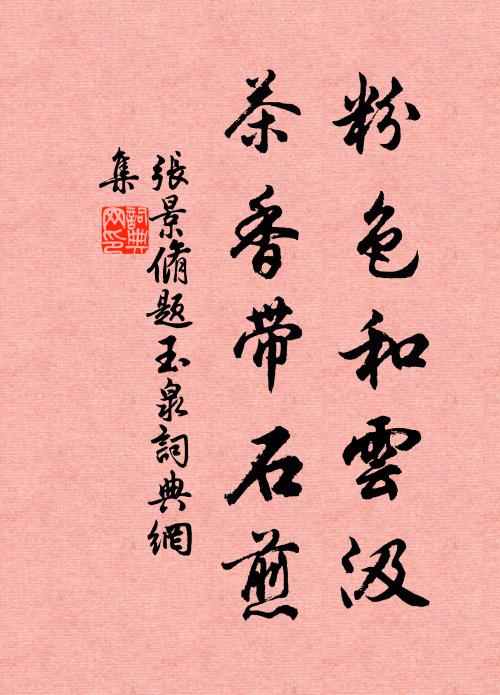 粉色和雲汲
茶香帶石煎
張景脩題玉泉詞典網
集
詞典
网印